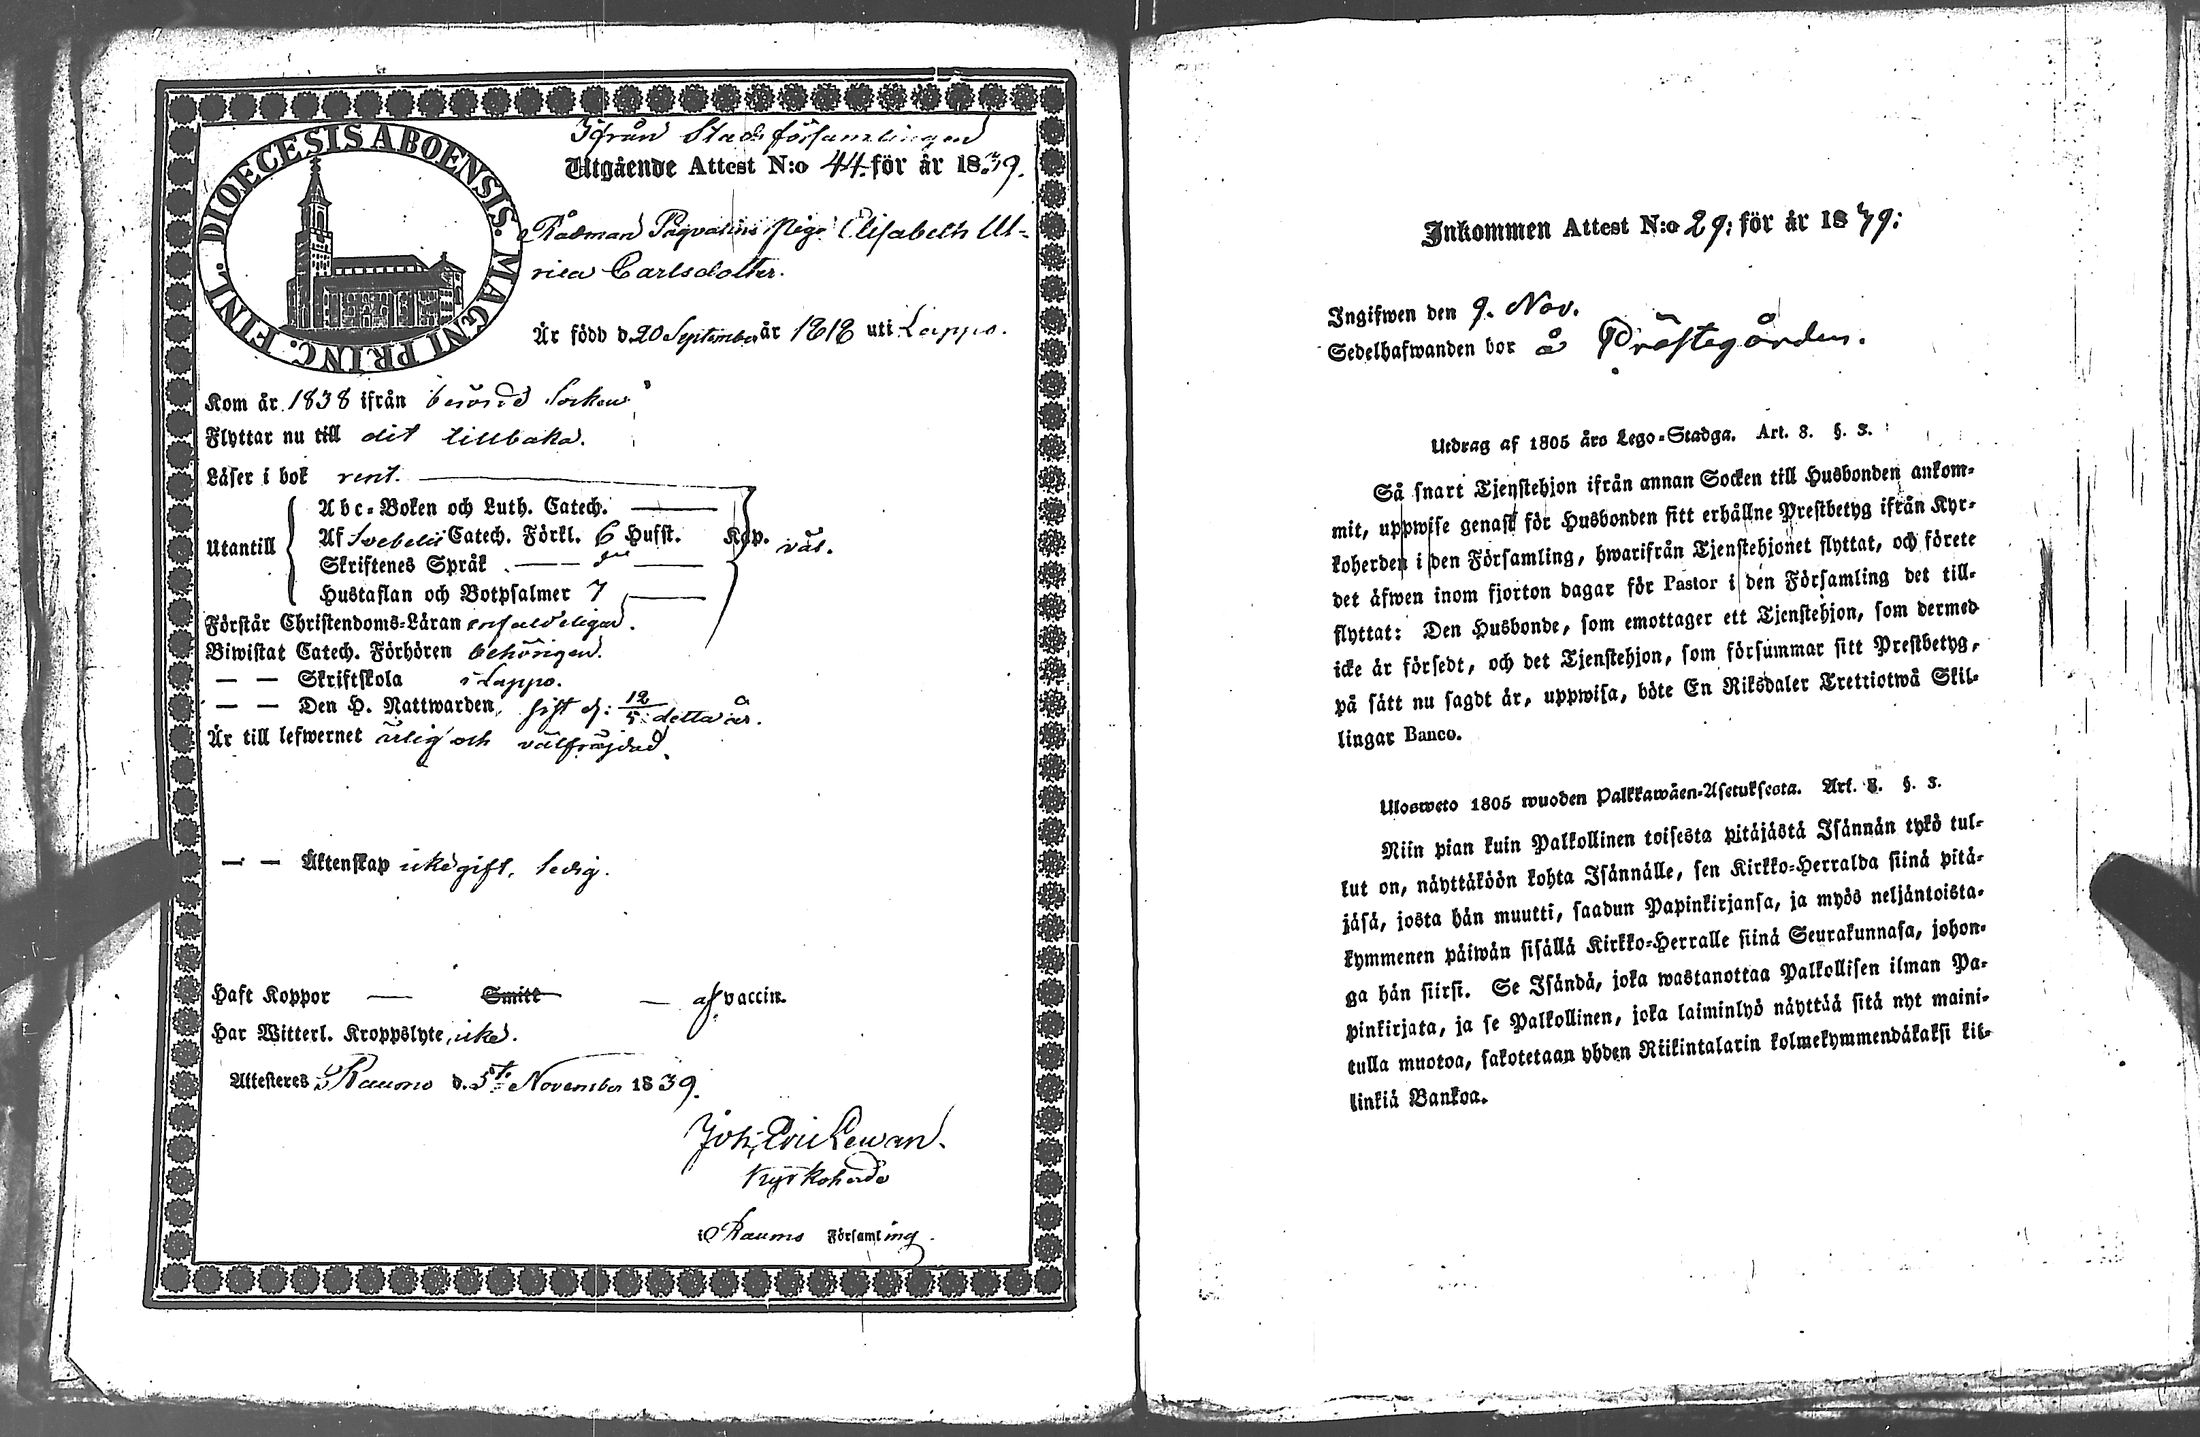 Ifrån Stadsförsamlingen
Utgående Attest N:o 44. för år 1839.
DIOECESIS ABOENSIS. MAGNI PRINC. FINL.
Rådman Pigen Elisabeth Ul-
rica Carlsdotter.
Är född d. 20 September år 1818 uti Lappo.
Kom år 1838 ifrån berörd Socken
Flyttar nu till dit tillbaka.
Läser i bok rent.
Utantill
Abc-Boken och Luth. Catech.
Af Svebelii Catech. Förkl. 6 Hufst. Kap. väl.
Skriftenes Språk
Hustaflan och Botpsalmer 7
Förstår Christendoms-Läran enfaldeligen.
Biwistat Catech. Förhören behörigen.
— — Skriftskola i Lappo.
— — Den H. Nattwarden, sist d: 12/5: detta år.
Är till lefwernet ärlig och välfräjdad.
— — Äktenskap icke gift, ledig.
Haft Koppor — Smitt — af vaccin.
Har Witterl. Kroppslyte, icke.
Attesteres Raumo d. 5te November 1839.
Joh. Eric Lewan.
Kyrkoherde
i Raumo Församling.
Inkommen Attest N:o 29: för år 1839:
Ingifwen den 9. Nov.
Sedelhafwanden bor å Prästegården.
Utdrag af 1805 års Lego-Stadga. Art. 8. §. 3.
Så snart Tjenstehjon ifrån annan Socken till Husbonden ankom-
mit, uppwise genast för Husbonden sitt erhållne Prestbetyg ifrån Kyr-
koherden i den Församling, hwarifrån Tjenstehjonet flyttat, och förete
det äfwen inom fjorton dagar för Pastor i den Församling det till-
flyttat: Den Husbonde, som emottager ett Tjenstehjon, som dermed
icke är försedt, och det Tjenstehjon, som försummar sitt Prestbetyg,
på sätt nu sagdt är, uppwisa, böte En Riksdaler Trettiotwå Skil-
lingar Banco.
Ulosweto 1805 wuoden Palkkawäen-Asetuksesta. Art. 8. §. 3.
Niin pian kuin Palkollinen toisesta pitäjästä Isännän tykö tul-
lut on, näyttäköön kohta Isännälle, sen Kirkko-Herralda siinä pitä-
jäsä, josta hän muutti, saadun Papinkirjansa, ja myös neljäntoista-
kymmenen päiwän sisällä Kirkko-Herralle siinä Seurakunnasa, johon-
ga hän siirsi. Se Isändä, joka wastanottaa Palkollisen ilman Pa-
pinkirjata, ja se Palkollinen, joka laiminlyö näyttää sitä nyt maini-
tulla muotoa, sakotetaan yhden Riikintalarin kolmekymmendäkaksi kil-
linkiä Bankoa.